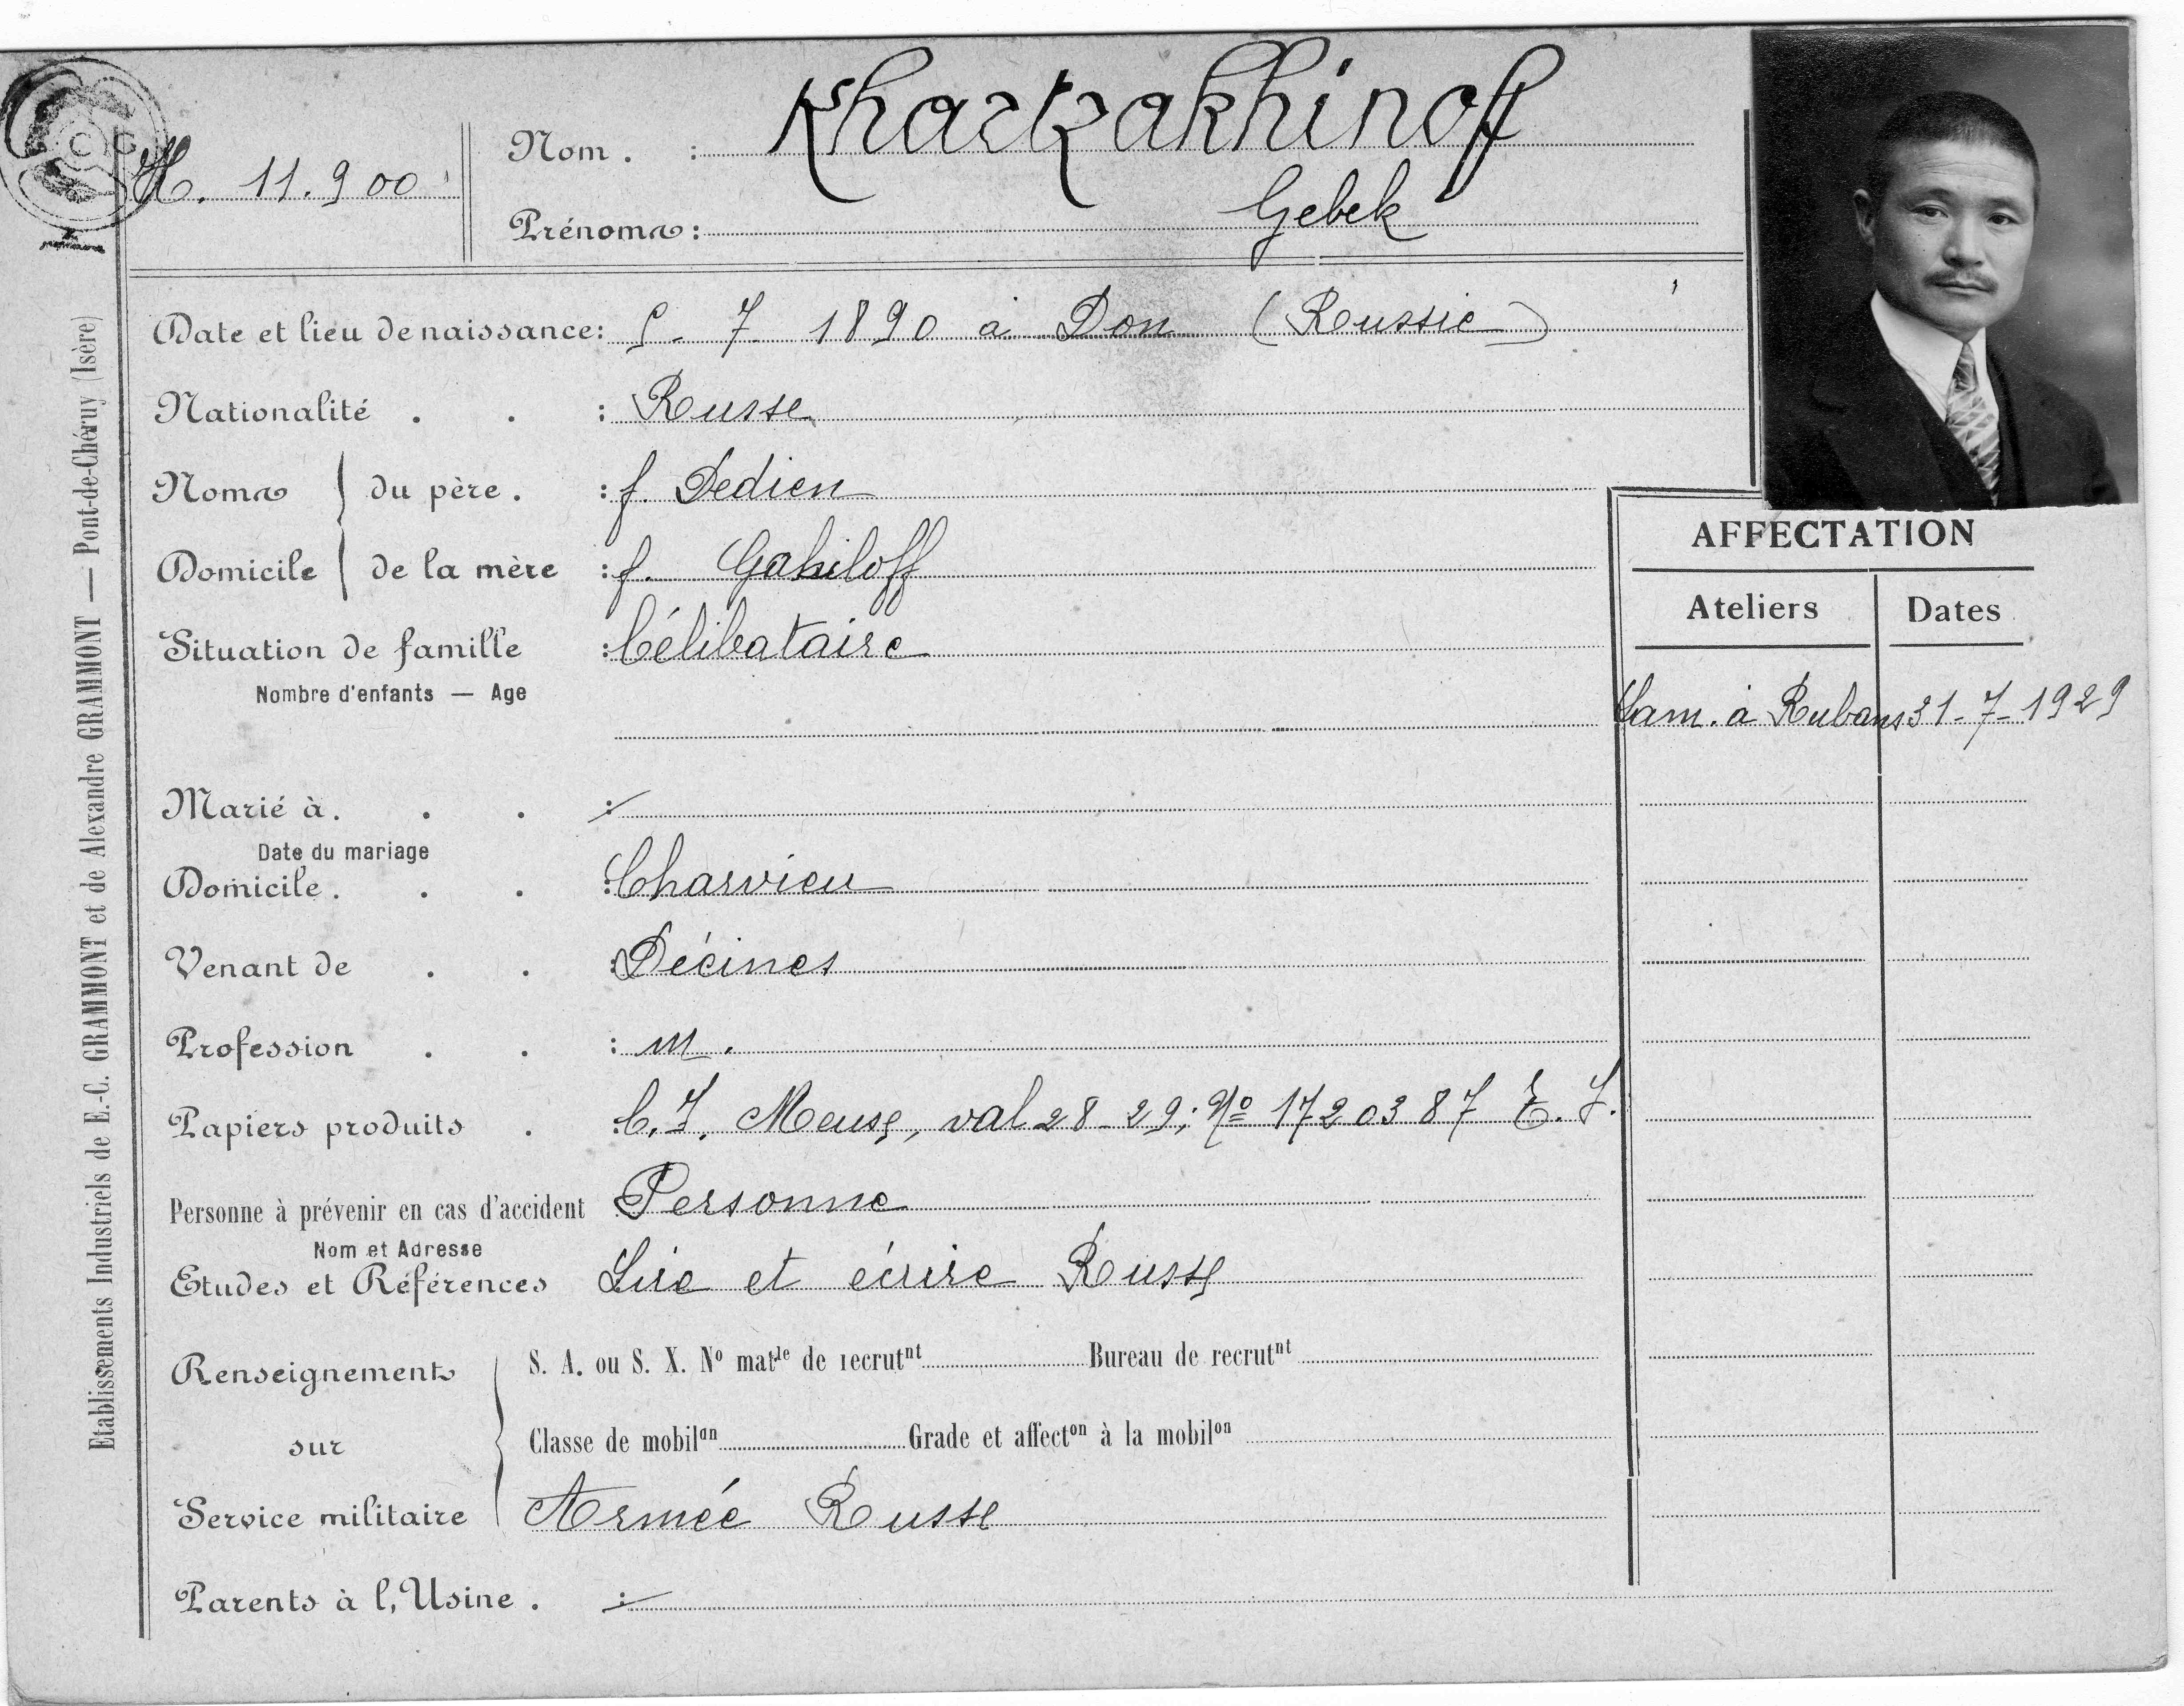 C G
H. 11.900
Nom . : Khartzakhinoff
Prénoms : Gebek
Date et lieu de naissance : 5. 7. 1890 à Don (Russie)
Nationalité . . : Russe
Noms Domicile
du père . : f. Dedien
de la mère : f. Gahiloff
Situation de famille : Célibataire
Nombre d'enfants — Age
Marié à . . . :
Date du mariage
Domicile . . . : Charvieu
Venant de . . : Décines
Profession . . : m.
Papiers produits . : C.I. Meuse, val 28-29; No 1720387
Personne à prévenir en cas d'accident Personne
Nom et Adresse
Etudes et Références Lire et écrire Russe
Renseignements sur Service militaire
S. A. ou S. X. No matle de recrutnt Bureau de recrutnt
Classe de mobilon Grade et affecton à la mobilon
Armée Russe
Parents à l'Usine . :
AFFECTATION
Ateliers Dates
Lam. à Rubans 31-7-1929
Etablissements Industriels de E.-C. GRAMMONT et de Alexandre GRAMMONT — Pont-de-Chéruy (Isère)